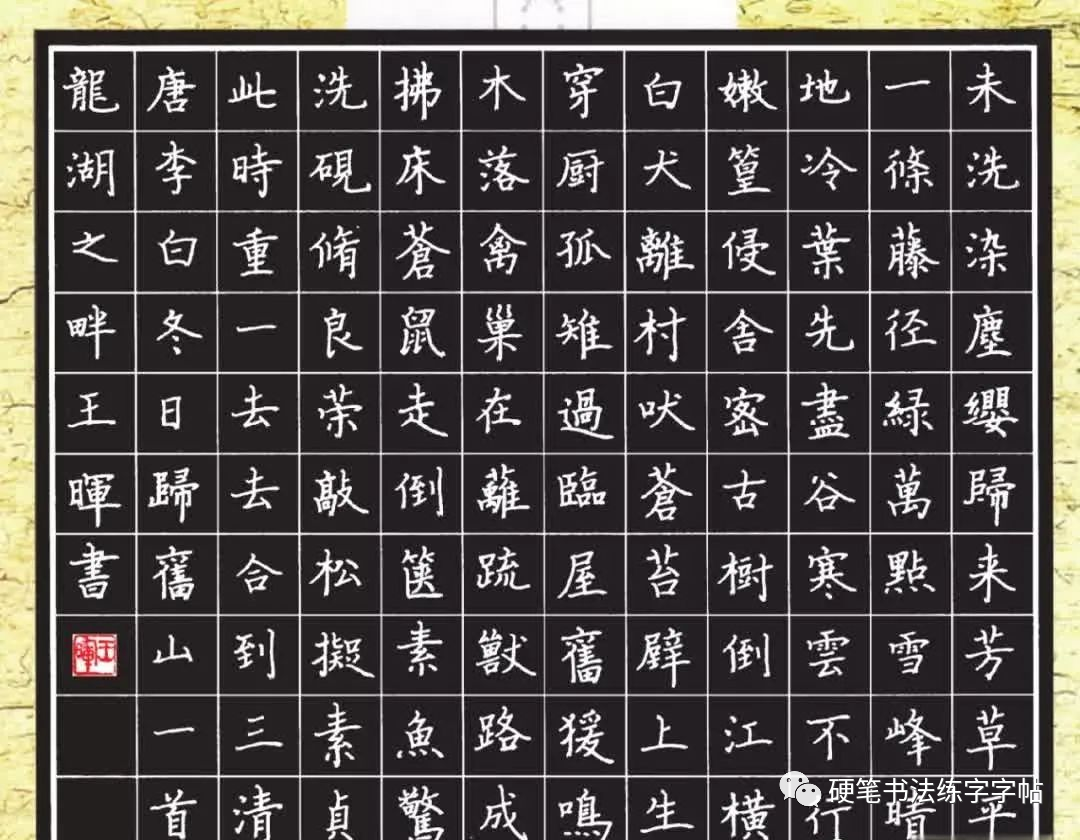 未洗染塵纓歸来芳草平
一條藤径緑萬點雪峰晴
地冷葉先盡谷寒雲不行
嫩篁侵舍密古樹倒江横
白犬離村吠蒼苔壁上生
穿厨孤雉過臨屋舊猨鳴
木落禽巢在蘺疏獸路成
拂床蒼鼠走倒篋素魚驚
洗硯脩良策敲松擬素貞
此時重一去去合到三清
唐李白冬日歸舊山一首
龍湖之畔王暉書
王暉
硬笔书法练字字帖